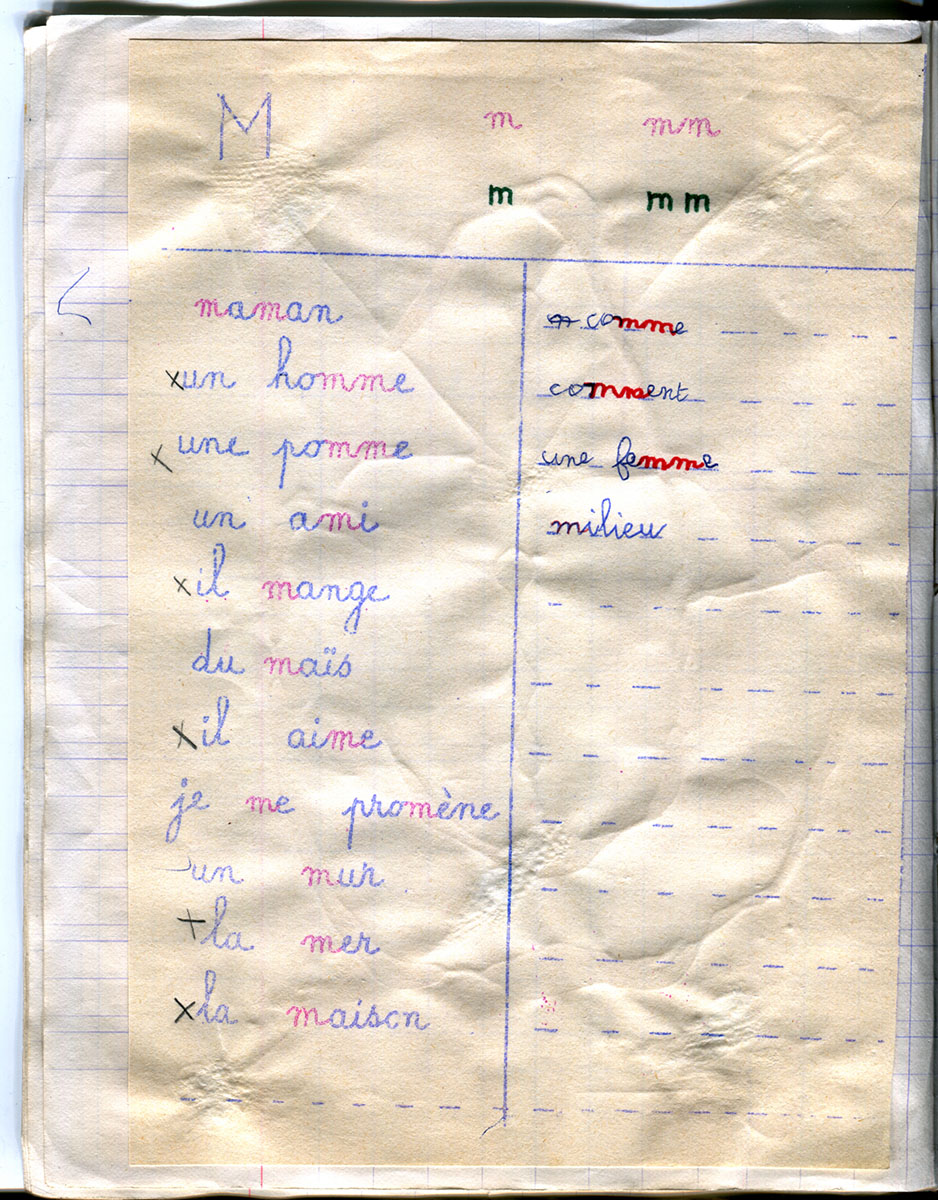 M m mm
m m m
maman
un homme
une pomme
un ami
il mange
du maïs
il aime
je me promène
un mur
la mer
la maison
comme
comment
une femme
milieu